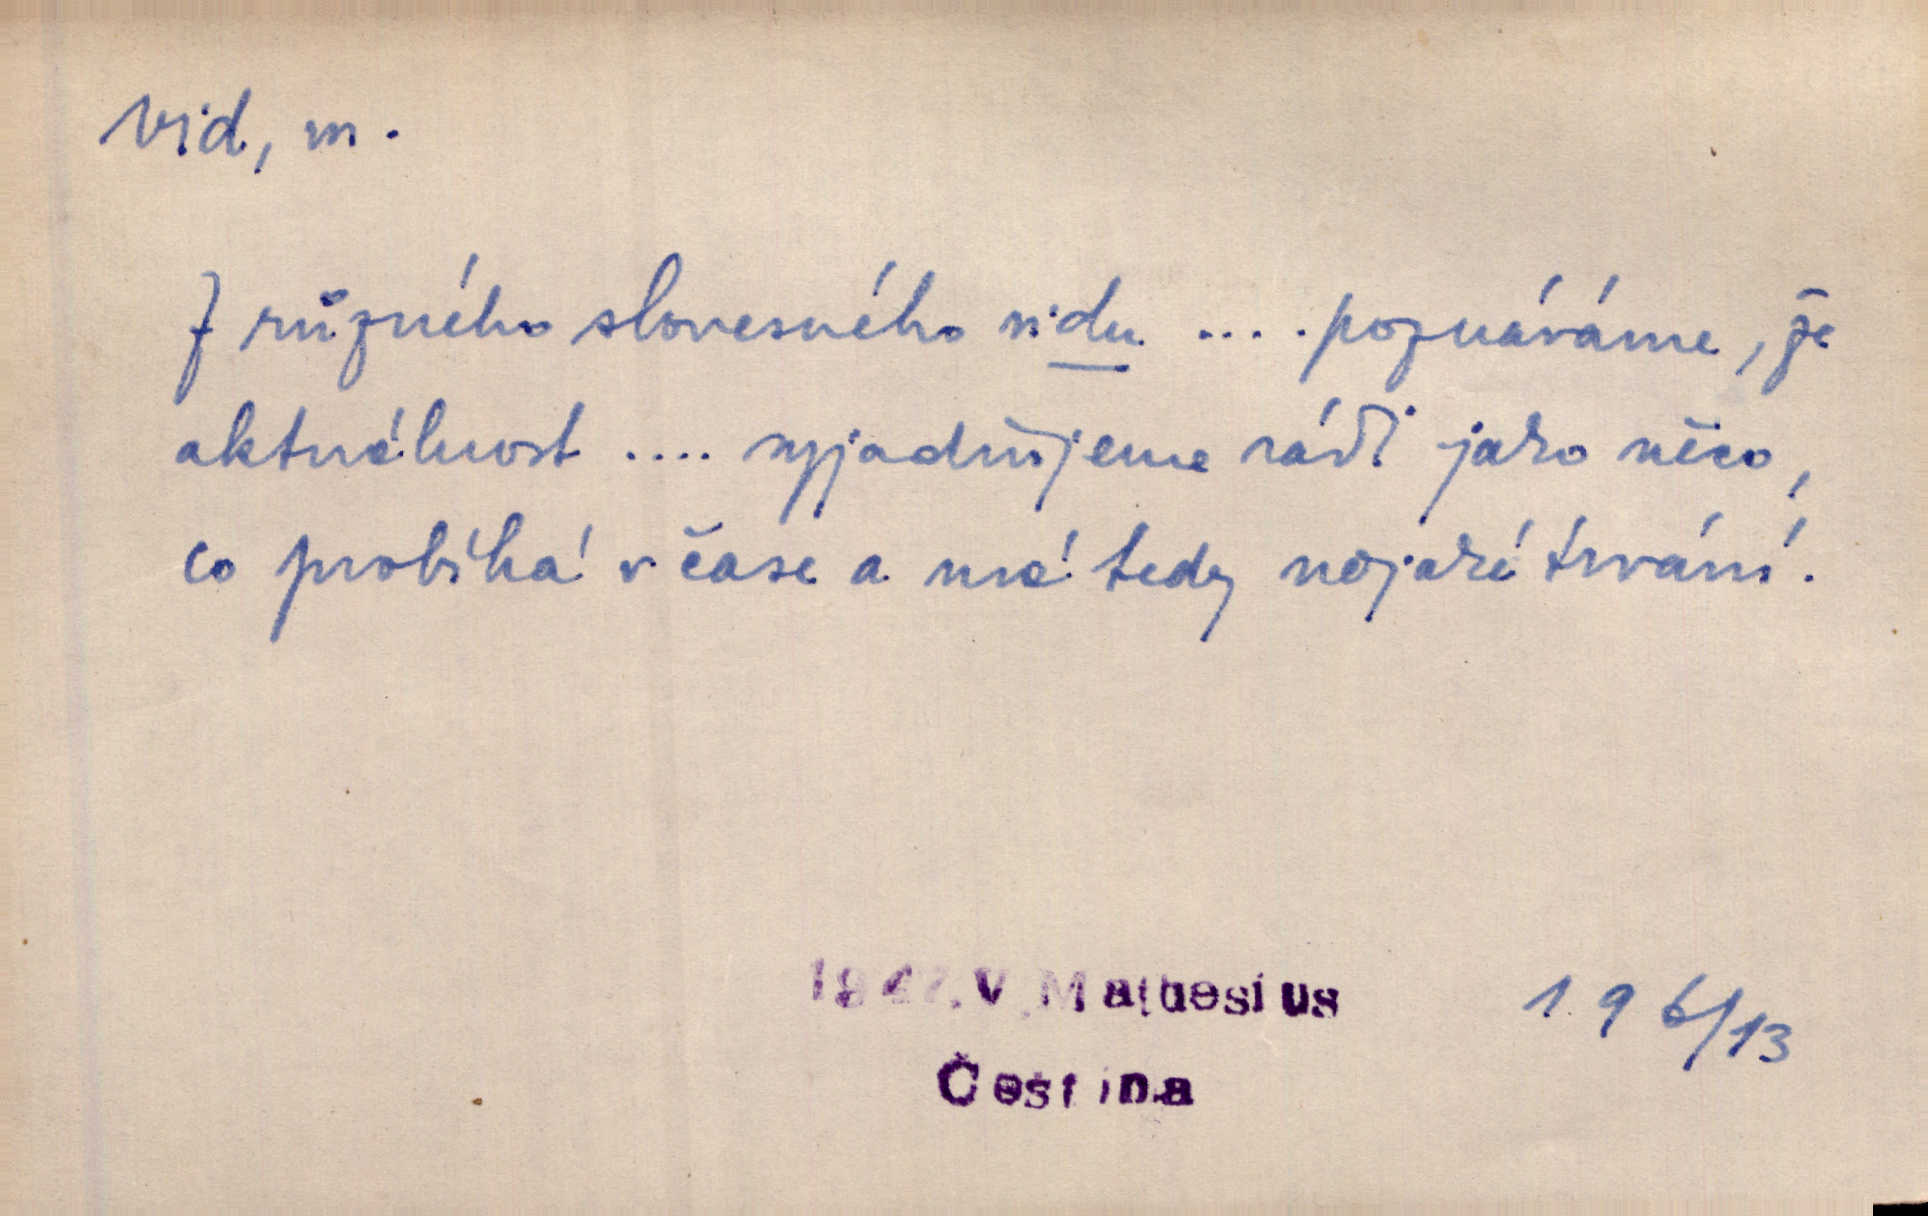 vid, m.
Z různého slovesného vidu .... poznáváme, že
aktuálnost .... vyjadřujeme rádi jako něco,
co probíhá v čase a má tedy nějaké trvání.
1947.V.Mathesius
196/13
Čeština